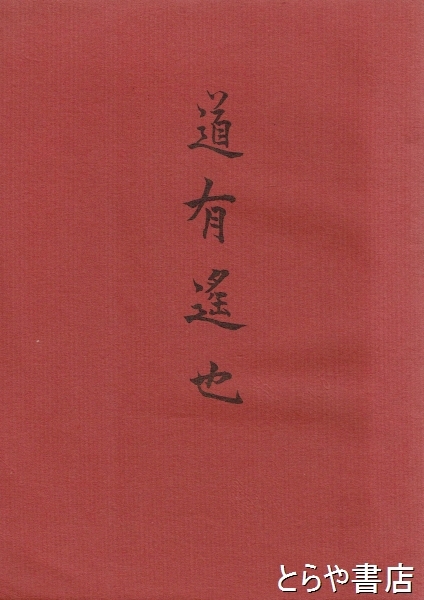 道有遙也
とらや書店